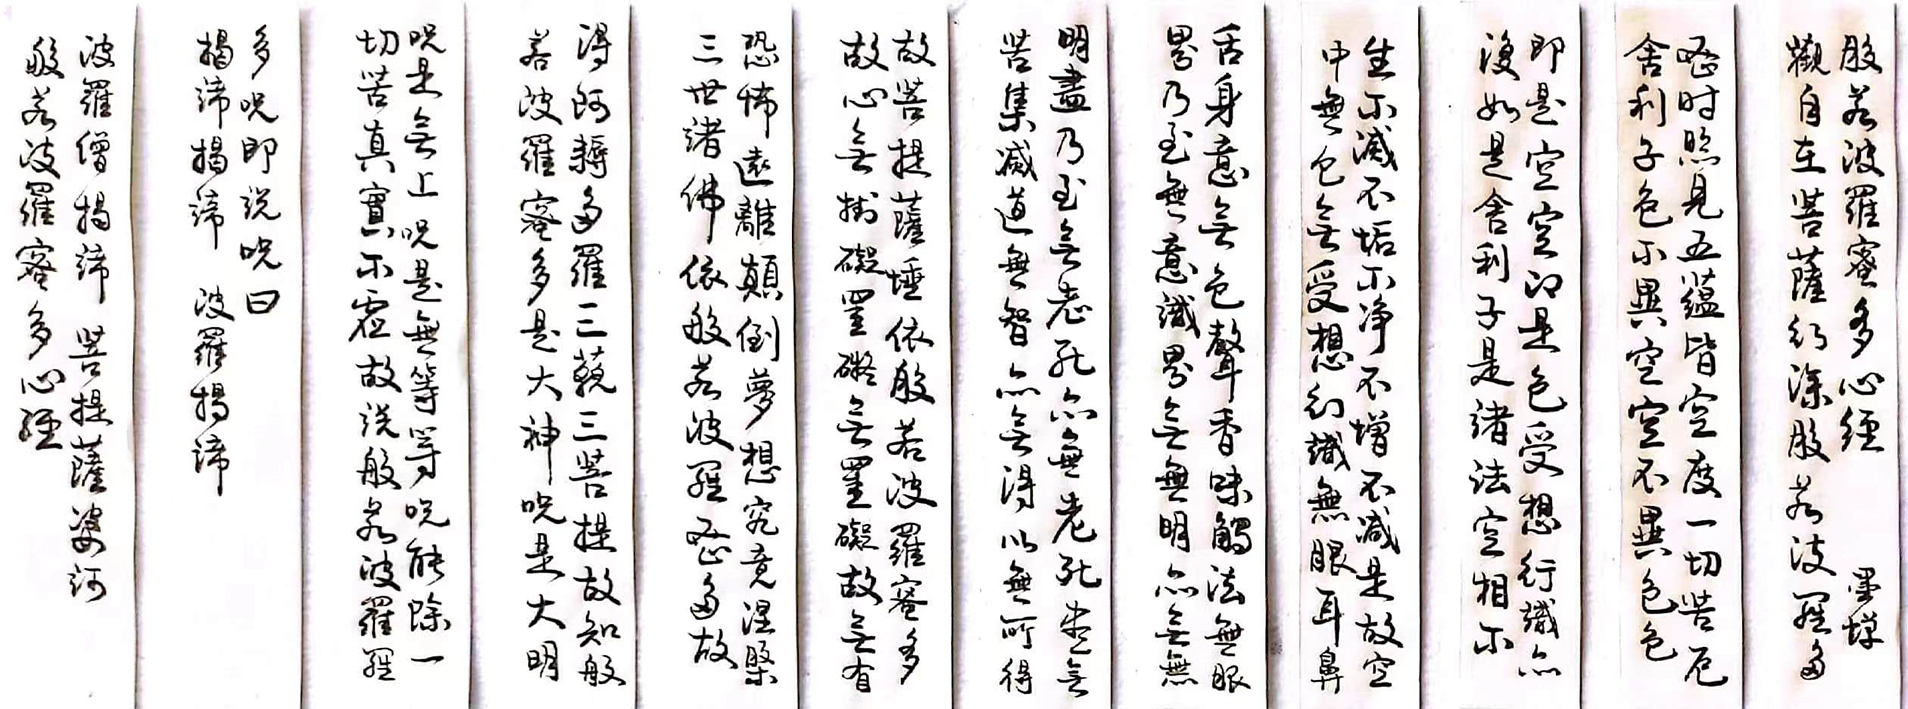 般若波羅蜜多心經 墨
觀自在菩薩行深般若波羅多
密时照見五蕴皆空度一切苦厄
舍利子色不異空空不異色色
即是空空即是色受想行識亦
復如是舍利子是諸法空相不
生不滅不垢不净不增不减是故空
中無色無受想行識無眼耳鼻
舌身意無色聲香味觸法無眼
界乃至無意識界無無明亦無無
明盡乃至無老死亦無老死盡無
苦集滅道無智亦無得以無所得
故菩提薩埵依般若波羅蜜多
故心無掛礙罣礙無罣礙故無有
恐怖遠離顛倒夢想究竟涅槃
三世諸佛依般若波羅密多故
得阿耨多羅三藐三菩提故知般
若波羅蜜多是大神咒是大明
咒是無上咒是無等等咒能除一
切苦真實不虛故説般若波羅羅
多咒即説咒曰
揭諦揭諦 波羅揭諦
波羅僧揭諦 菩提薩婆訶
般若波羅蜜多心經